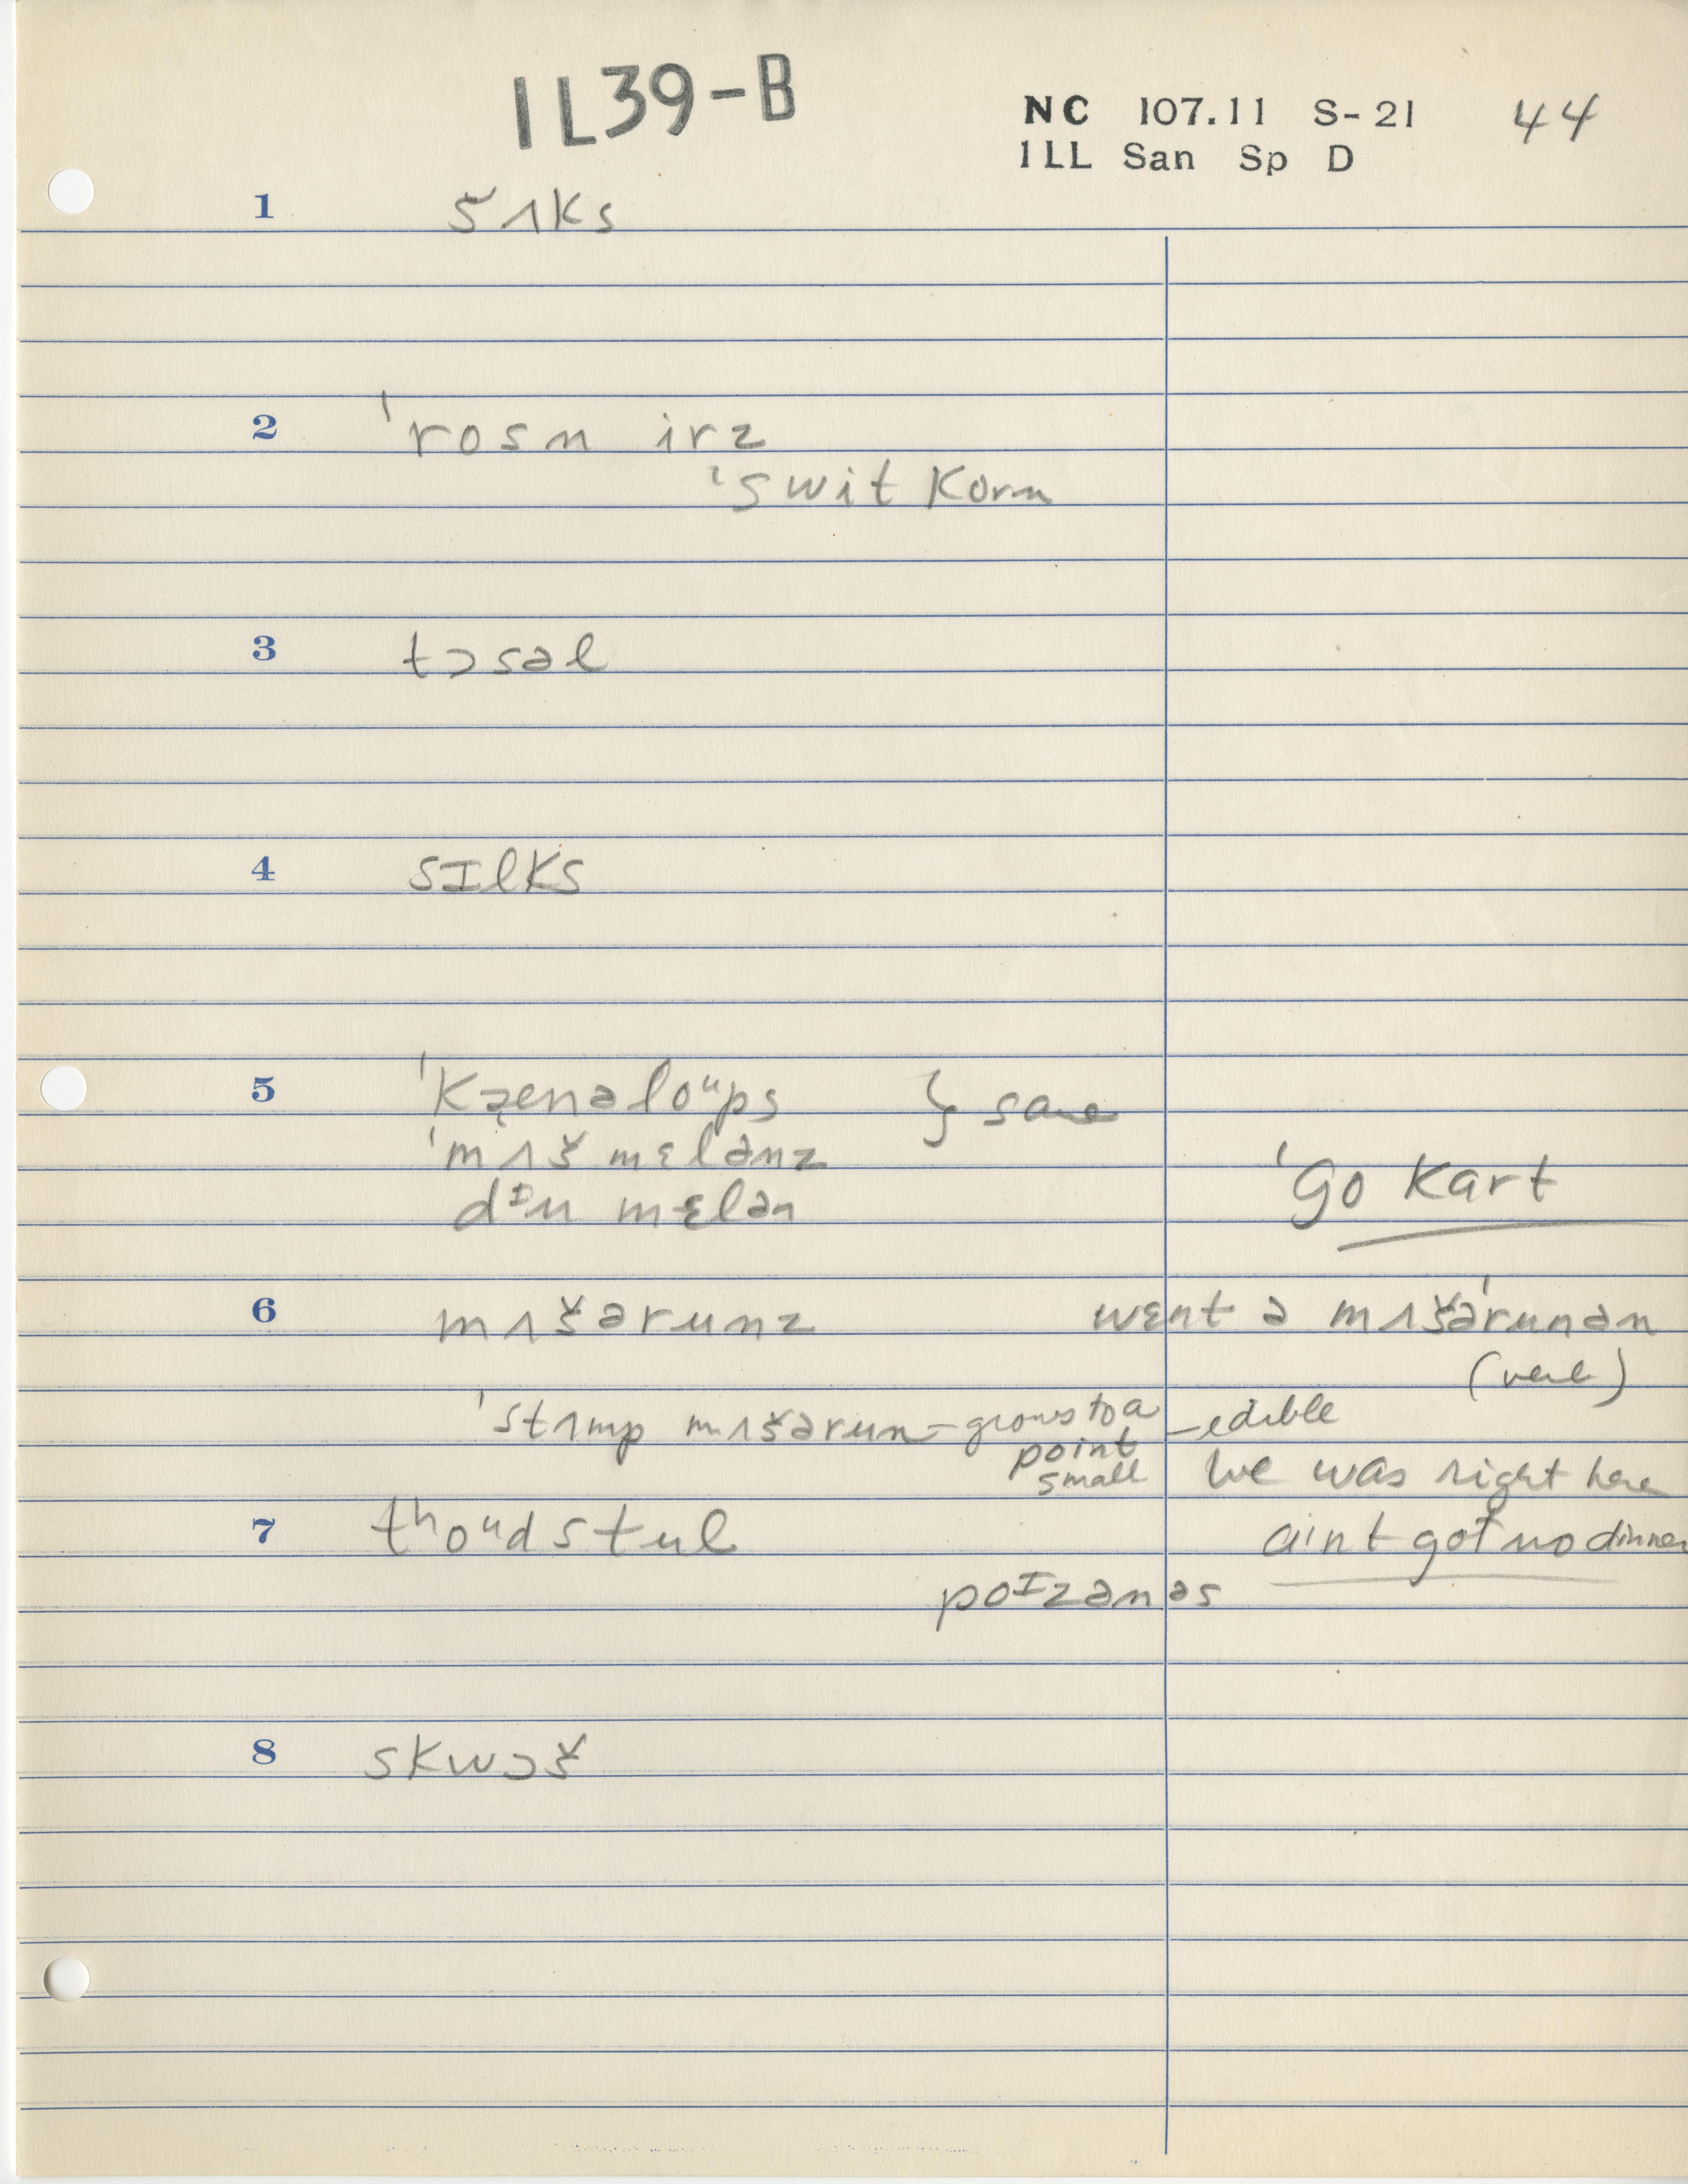 IL39-B
NC 107.11 S-21 44
ILL San Sp D
1 šʌks
2 ˈrosn irz
ˈswit korn
3 tɔsəl
4 sɪlks
5 ˈkæenəloᵘps } same
ˈmʌšmɛlənz
dᶦu mɛlən
ˈgo kart
6 mʌšərunz went ə mʌšəˈrunən
(verb)
ˈstʌmp mʌšərun - grows to a - edible
point
small We was right here
7 tʰoᵘdstul ain't got no dinner
poɪzənəs
8 skwɔš